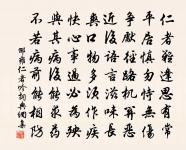 仁者難逢思有常
平居慎勿恃無傷
爭先徑路機關惡
近後語言滋味長
爽口物多須作疾
快心事過必為殃
與其病後能求藥
不若病前能預防
邵雍仁者吟詞典網書